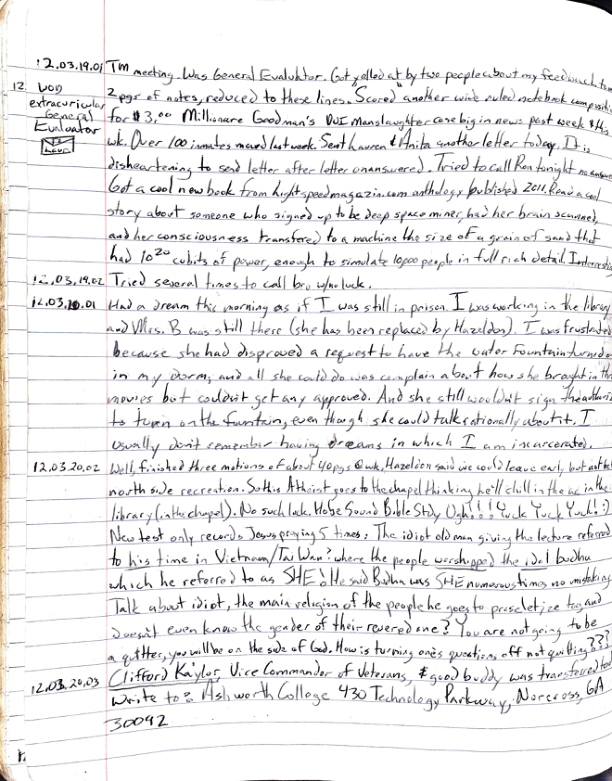 12.03.19.01 Tm meeting. Was General Evaluator. Got yelled at by two people about my feedback from
12. WOD 2 pgs of notes, reduced to these lines. "Scored" another wide ruled notebook composition
extracuricular for $3.00 Millionare Goodman's DUI Manslaughter case big in news past week & this
General wk. Over 100 inmates moved last week. Sent Lauren & Anita another letter today. It is
Evaluator disheartening to send letter after letter unanswered. Tried to call Ron tonight no answer
Got a cool new book from lightspeedmagazin.com anthology published 2011. Read a cool
story about someone who signed up to be deep space miner, had her brain scanned,
and her consciousness transfered to a machine the size of a grain of sand that
had 10²⁰ cubits of power, enough to simulate 10,000 people in full rich detail. Interesting
12.03.19.02 Tried several times to call bro w/no luck.
12.03.20.01 Had a dream this morning as if I was still in prison. I was working in the library
and Mrs. B was still there (she has been replaced by Hazeldon). I was frustrated
because she had disproved a request to have the water fountain turned on
in my dorm, and all she could do was complain about how she brought in the
movies but couldn't get any approved. And she still wouldn't sign the
to turn on the fountain, even though she could talk rationally about it. I
usually don't remember having dreams in which I am incarcerated.
12.03.20.02 Well, finished three motions of about 40 pgs @ wk, Hazeldon said we could leave early, but
north side recreation. So this Atheist goes to the chapel thinking he'll chill in the ac in the
library (in the chapel). No such luck. Hobe Sound Bible Stdy Ugh!!! Yuck Yuck Yuck! :)
New test only records Jesus praying 5 times. The idiot old man giving the lecture referred
to his time in Vietnam/Tai Wan? where the people worshipped the idol budha
which he referred to as SHE! He said Budha was SHE numerous times no mistaking
Talk about idiot, the main religion of the people he goes to proseletize to and
doesn't even know the gender of their revered one? You are not going to be
a quitter, you will be on the side of God. How is turning one's questions off not quitting???
12.03.20.03 Clifford Kaylor, Vice Commander of Veterans, & good buddy was transferred
Write to: Ashworth College 430 Technology Parkway, Norcross, GA
30092